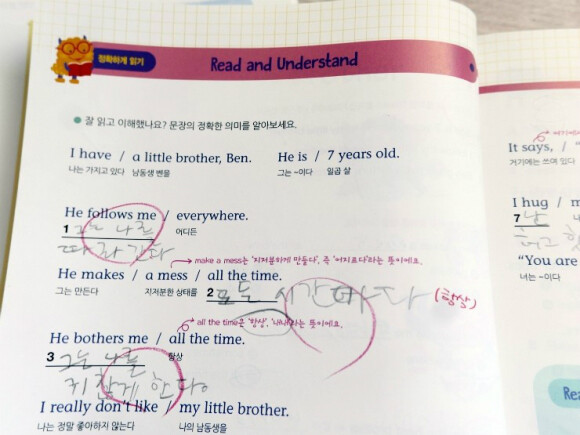 정확하게 읽기
Read and Understand
잘 읽고 이해했나요? 문장의 정확한 의미를 알아보세요.
I have / a little brother, Ben.
나는 가지고 있다 남동생 벤을
He is / 7 years old.
그는 ~이다 일곱 살
He follows me / everywhere.
1 그는 나를 어디든
따라 간다
make a mess는 '지저분하게 만들다', 즉 '어지르다'라는 뜻이에요.
He makes / a mess / all the time.
그는 만든다 지저분한 상태를 2 모든 시간마다 (항상)
all the time은 '항상', '내내'라는 뜻이에요.
He bothers me / all the time.
3 그는 나를 항상
귀찮게 한다.
I really don't like / my little brother.
나는 정말 좋아하지 않는다 나의 남동생을
It says, /
거기에는 쓰여 있다
I hug /
7
"You are
너는 ~이다